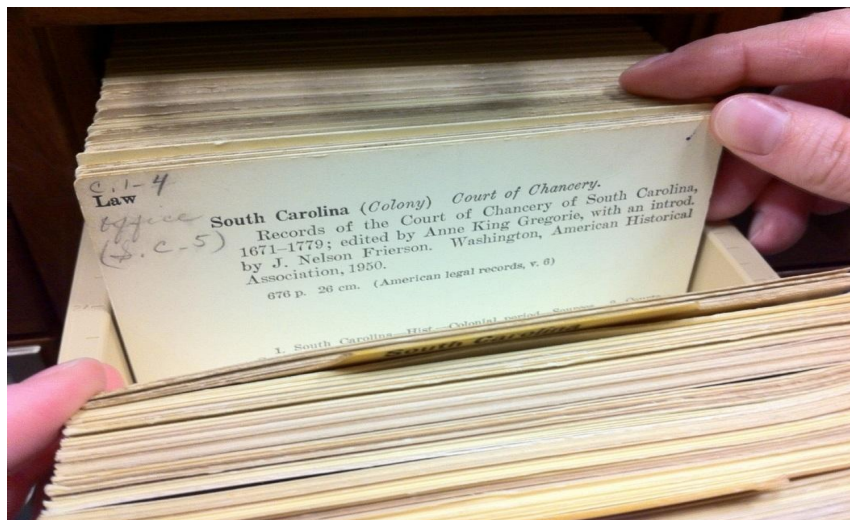 c. 1-4
Law
office
(S.C-5)
South Carolina (Colony) Court of Chancery.
Records of the Court of Chancery of South Carolina,
1671–1779; edited by Anne King Gregorie, with an introd.
by J. Nelson Frierson. Washington, American Historical
Association, 1950.
676 p. 26 cm. (American legal records, v. 6)
1. South Carolina—Hist.—Colonial period—Sources. 2. Courts
South Carolina